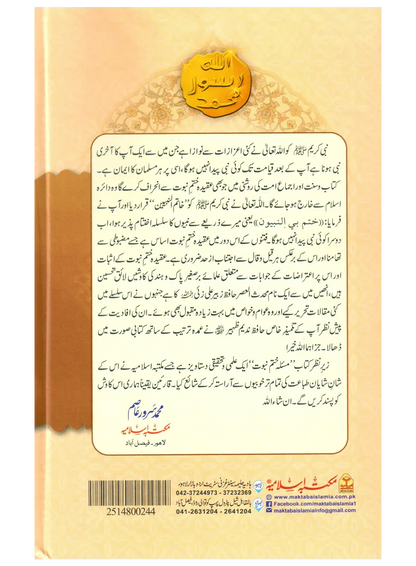 الله
رسول
محمد
نبی کریم ﷺ کو اللہ تعالیٰ نے کئی اعزازات سے نوازا ہے جن میں سے ایک آپ کا آخری
نبی ہونا ہے آپ کے بعد قیامت تک کوئی نبی پیدا نہیں ہوگا، اسی پر ہر مسلمان کا ایمان ہے۔
کتاب وسنت اور اجماع امت کی روشنی میں جو بھی عقیدہ ختم نبوت سے انحراف کرے گا وہ دائرہ
اسلام سے خارج ہو جائے گا۔ اللہ تعالیٰ نے نبی کریم ﷺ کو ”خاتم النبیین“ قرار دیا اور آپ نے
فرمایا: ((ختم بي النبيون)) یعنی میرے ذریعے سے نبیوں کا سلسلہ اختتام پذیر ہوا، اب
دوسرا کوئی نبی پیدا نہیں ہوگا۔ فتنوں کے اس دور میں عقیدہ ختم نبوت اساس ہے جسے مضبوطی سے
تھامنا اور اس کے برعکس ہر قیل وقال سے اجتناب از حد ضروری ہے۔ عقیدہ ختم نبوت کے اثبات
اور اس پر اعتراضات کے جوابات سے متعلق علمائے برصغیر پاک و ہند کی کاوشیں لائق تحسین
ہیں، انھیں میں سے ایک نام محدث العصر حافظ زبیر علی زئی رحمہ اللہ کا ہے جنہوں نے اس سلسلے میں
کئی مقالات تحریر کیے اور وہ عوام وخواص میں بہت زیادہ مقبول بھی ہوئے۔ ان کی افادیت کے
پیش نظر آپ کے تلمیذ خاص حافظ ندیم ظہیر نے عمدہ ترتیب کے ساتھ کتابی صورت میں
ڈھالا۔ جزاہما اللہ خیرا
زیر نظر کتاب ”مسئلہ ختم نبوت“ ایک علمی و تحقیقی دستاویز ہے جسے مکتبہ اسلامیہ نے اس کے
شان شایان طباعت کی تمام تر خوبیوں سے آراستہ کر کے شائع کیا۔ قارئین یقیناً ہماری اس کاوش
کو پسند کریں گے۔ ان شاء اللہ
محمد سرور عاصم
مکتبہ اسلامیہ
لاہور۔ فیصل آباد
مکتبہ اسلامیہ
www.maktabaislamia.com.pk
Facebook.com/maktabaislamia1
maktabaislamiainfo@gmail.com
042-37244973 - 37232369
041-2631204 - 2641204
2514800244